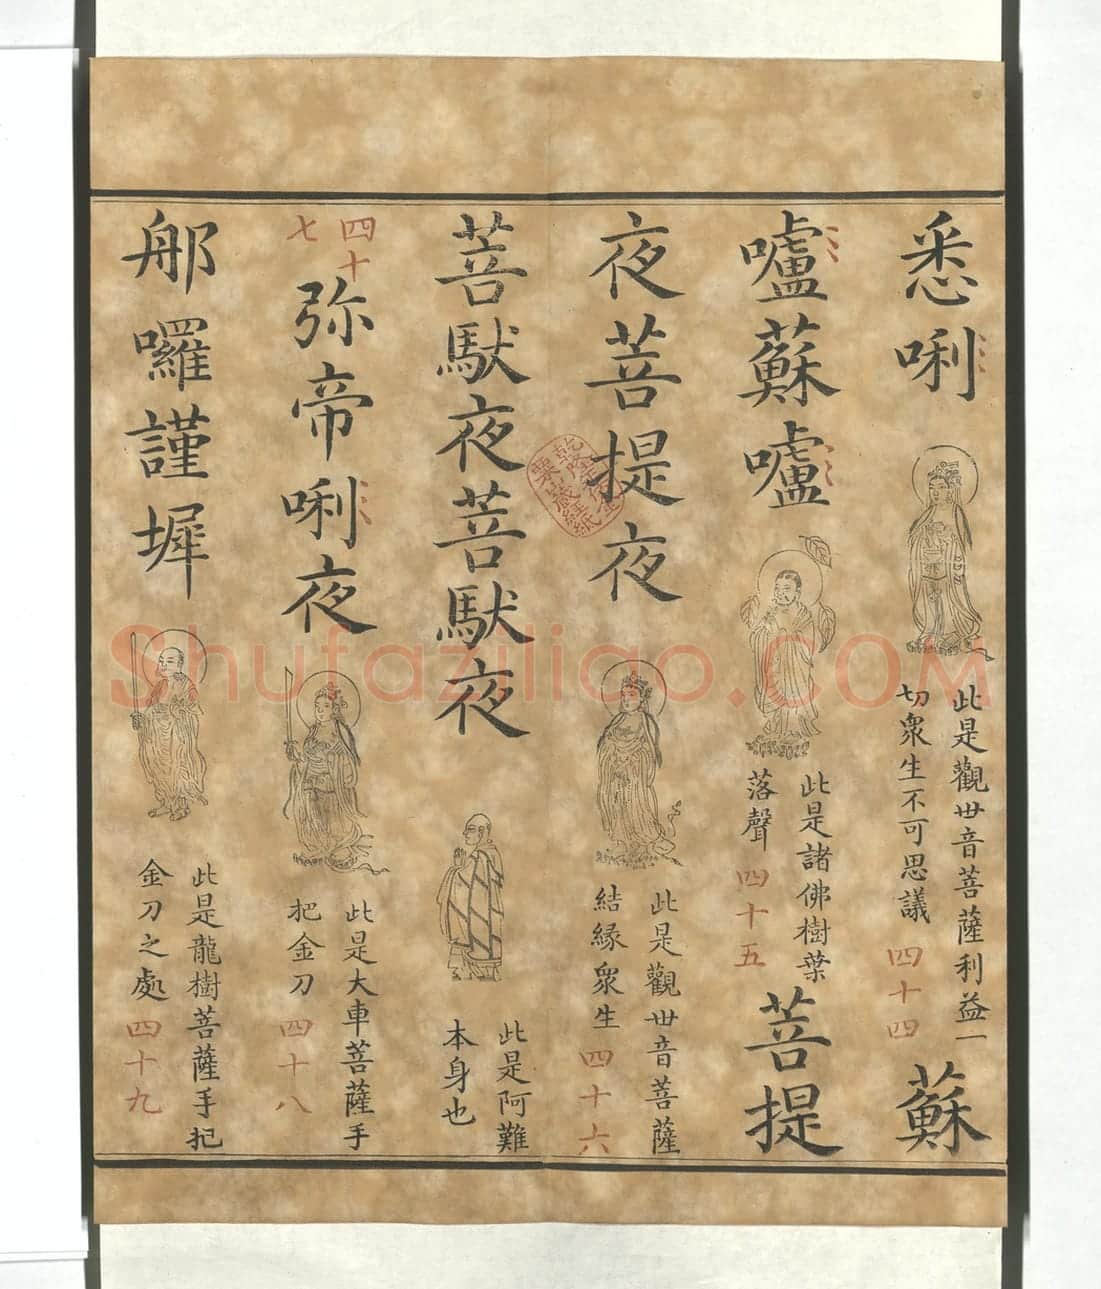 悉唎
此是觀世音菩薩利益一
切衆生不可思議 四十四
蘇
嚧蘇嚧
此是諸佛樹葉
落聲 四十五
菩提
夜菩提夜
此是觀世音菩薩
結緣衆生 四十六
菩馱夜菩馱夜
此是阿難
本身也
四十
七
弥帝唎夜
此是大車菩薩手
把金刀 四十八
那囉謹墀
此是龍樹菩薩手把
金刀之處 四十九
乾隆年仿
製藏經紙
Shufaziliao.com